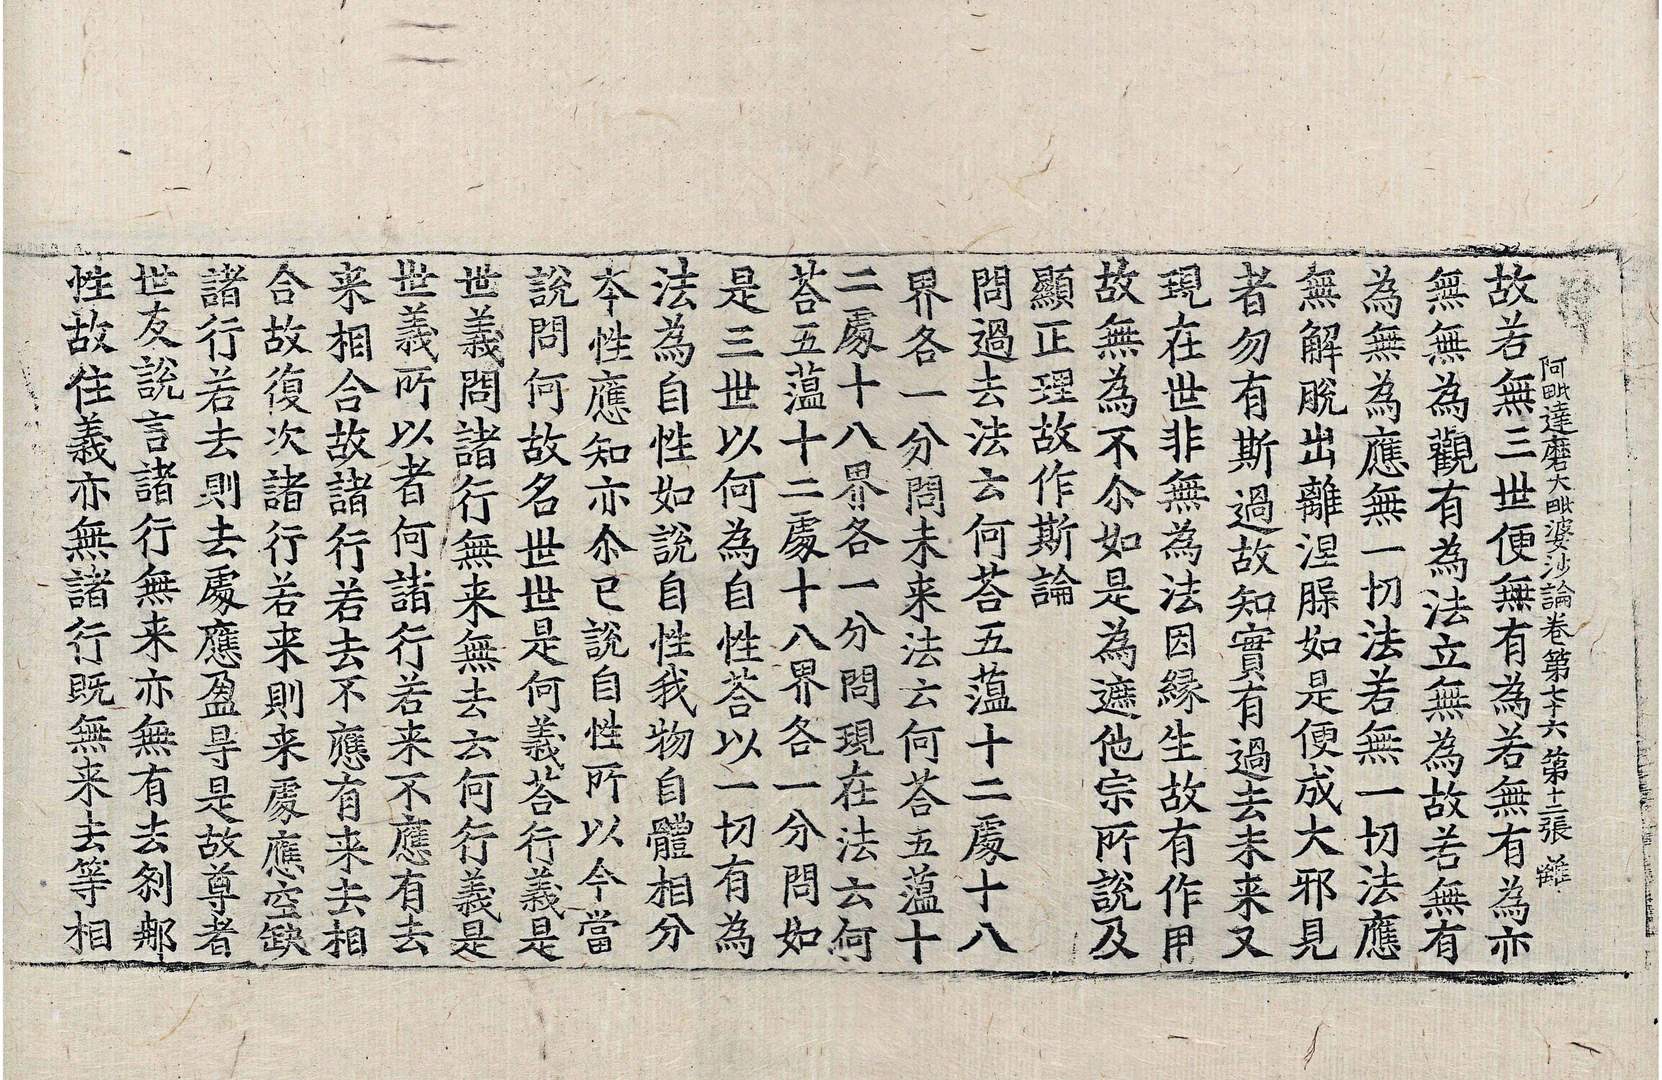 阿毗達磨大毗婆沙論卷第七十六 第十二張 雖
故若無三世便無有為若無有為亦
無無為觀有為法立無為故若無有
為無為應無一切法若無一切法應
無解脫出離涅槃如是便成大邪見
者勿有斯過故知實有過去未来又
現在世非無為法因緣生故有作用
故無為不尒如是為遮他宗所說及
顯正理故作斯論
問過去法云何荅五蘊十二處十八
界各一分問未来法云何荅五蘊十
二處十八界各一分問現在法云何
荅五蘊十二處十八界各一分問如
是三世以何為自性荅以一切有為
法為自性如說自性我物自體相分
本性應知亦尒已說自性所以今當
說問何故名世世是何義荅行義是
世義問諸行無来無去云何行義是
世義所以者何諸行若来不應有去
来相合故諸行若去不應有来去相
合故復次諸行若来則来處應空缺
諸行若去則去處應盈㝵是故尊者
世友說言諸行無来亦無有去刹那
性故住義亦無諸行既無来去等相